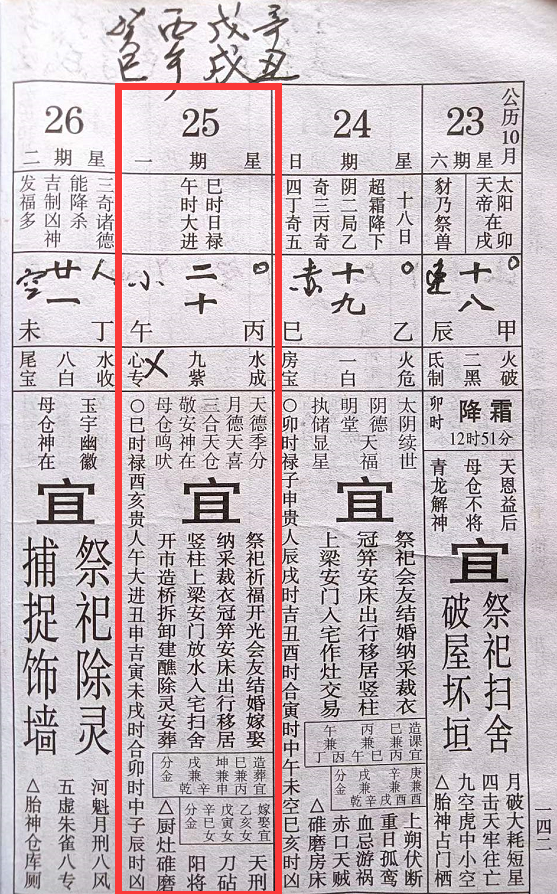 辛丑
戊戌
丙午
癸巳
公历10月
23
星期六
太阳在卯
天帝在戌
豺乃祭兽
十八
速
甲辰
火破
二黑
氐制
霜降
卯时
12时51分
天恩益后
母仓不将
青龙解神
宜
祭祀扫舍
破屋坏垣
月破大耗短星
四击天牢往亡
九空虎中小空
△胎神占门栖
一四二
24
星期日
十八日
超霜降下
阴二局乙
奇三丙奇
四丁奇五
十九
赤
乙巳
火危
一白
房宝
太阴续世
阴德天福
明堂
执储显星
宜
祭祀会友结婚纳采裁衣
冠笄安床出行移居竖柱
上梁安门入宅作灶交易
造课宜
分金
上朔伏断
重日孤虚
血忌游祸
赤口天贼
△碓磨房床
○卯时禄子申贵人辰戌时吉丑酉时合寅时中午未空巳亥凶
25
星期一
巳时日禄
午时大进
二十
小
丙午
水成
九紫
心专
天德季分
月德天喜
三合天仓
敬安神在
母仓鸣吠
宜
祭祀祈福开光会友结婚嫁娶
纳采裁衣冠笄安床出行移居
竖柱上梁安门放水入宅扫舍
开市造桥拆卸建醮除灵安葬
造葬宜
分金
嫁娶宜
乙亥女
戊寅女
辛巳女
分金
天刑
刀砧
阳将
△厨灶碓磨
○巳时禄酉亥贵人午大进丑申吉寅未戌时合卯时中子辰时凶
26
星期二
三奇诸德
能降杀
吉制凶神
发福多
廿一
人
空
丁未
水收
八白
尾宝
玉宇幽徽
母仓神在
宜
祭祀除灵
捕捉饰墙
河魁月刑八风
五虚朱雀八专
△胎神仓库厕